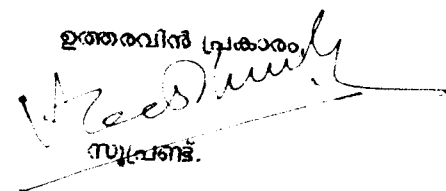 ഉത്തരവിൻ പ്രകാരം,
സൂപ്രണ്ട്.